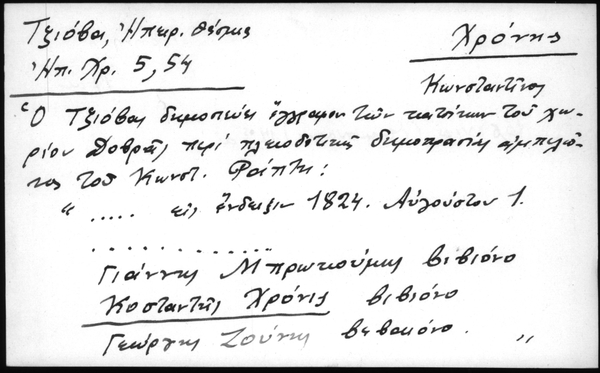 Τζιόβα, Ἠπειρ. Θέσμια
Χρόνης
Ἠπ. Χρ. 5, 54
Κωνσταντῖνος
Ὁ Τζιόβας δημοσιεύει ἔγγραφον τῶν κατοίκων τοῦ χω-
ρίου Δοβρᾶς περί πλειοδοτικῆς δημοπρασίας ἀμπελιῶ-
νος τοῦ Κωνστ. Ράπτη:
" ..... εἰς ἔνδειξιν 1824. Αὐγούστου 1.
.............
Γιάννης Μπρωτιούμης βιβιόνο
Κοσταντῆς Χρόνις βιβιόνο
Γεώργης Ζούνης βεβαιόνο. "